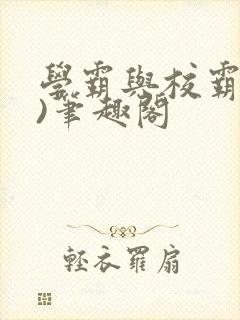 學霸與校霸
)筆趣閣
輕衣羅扇